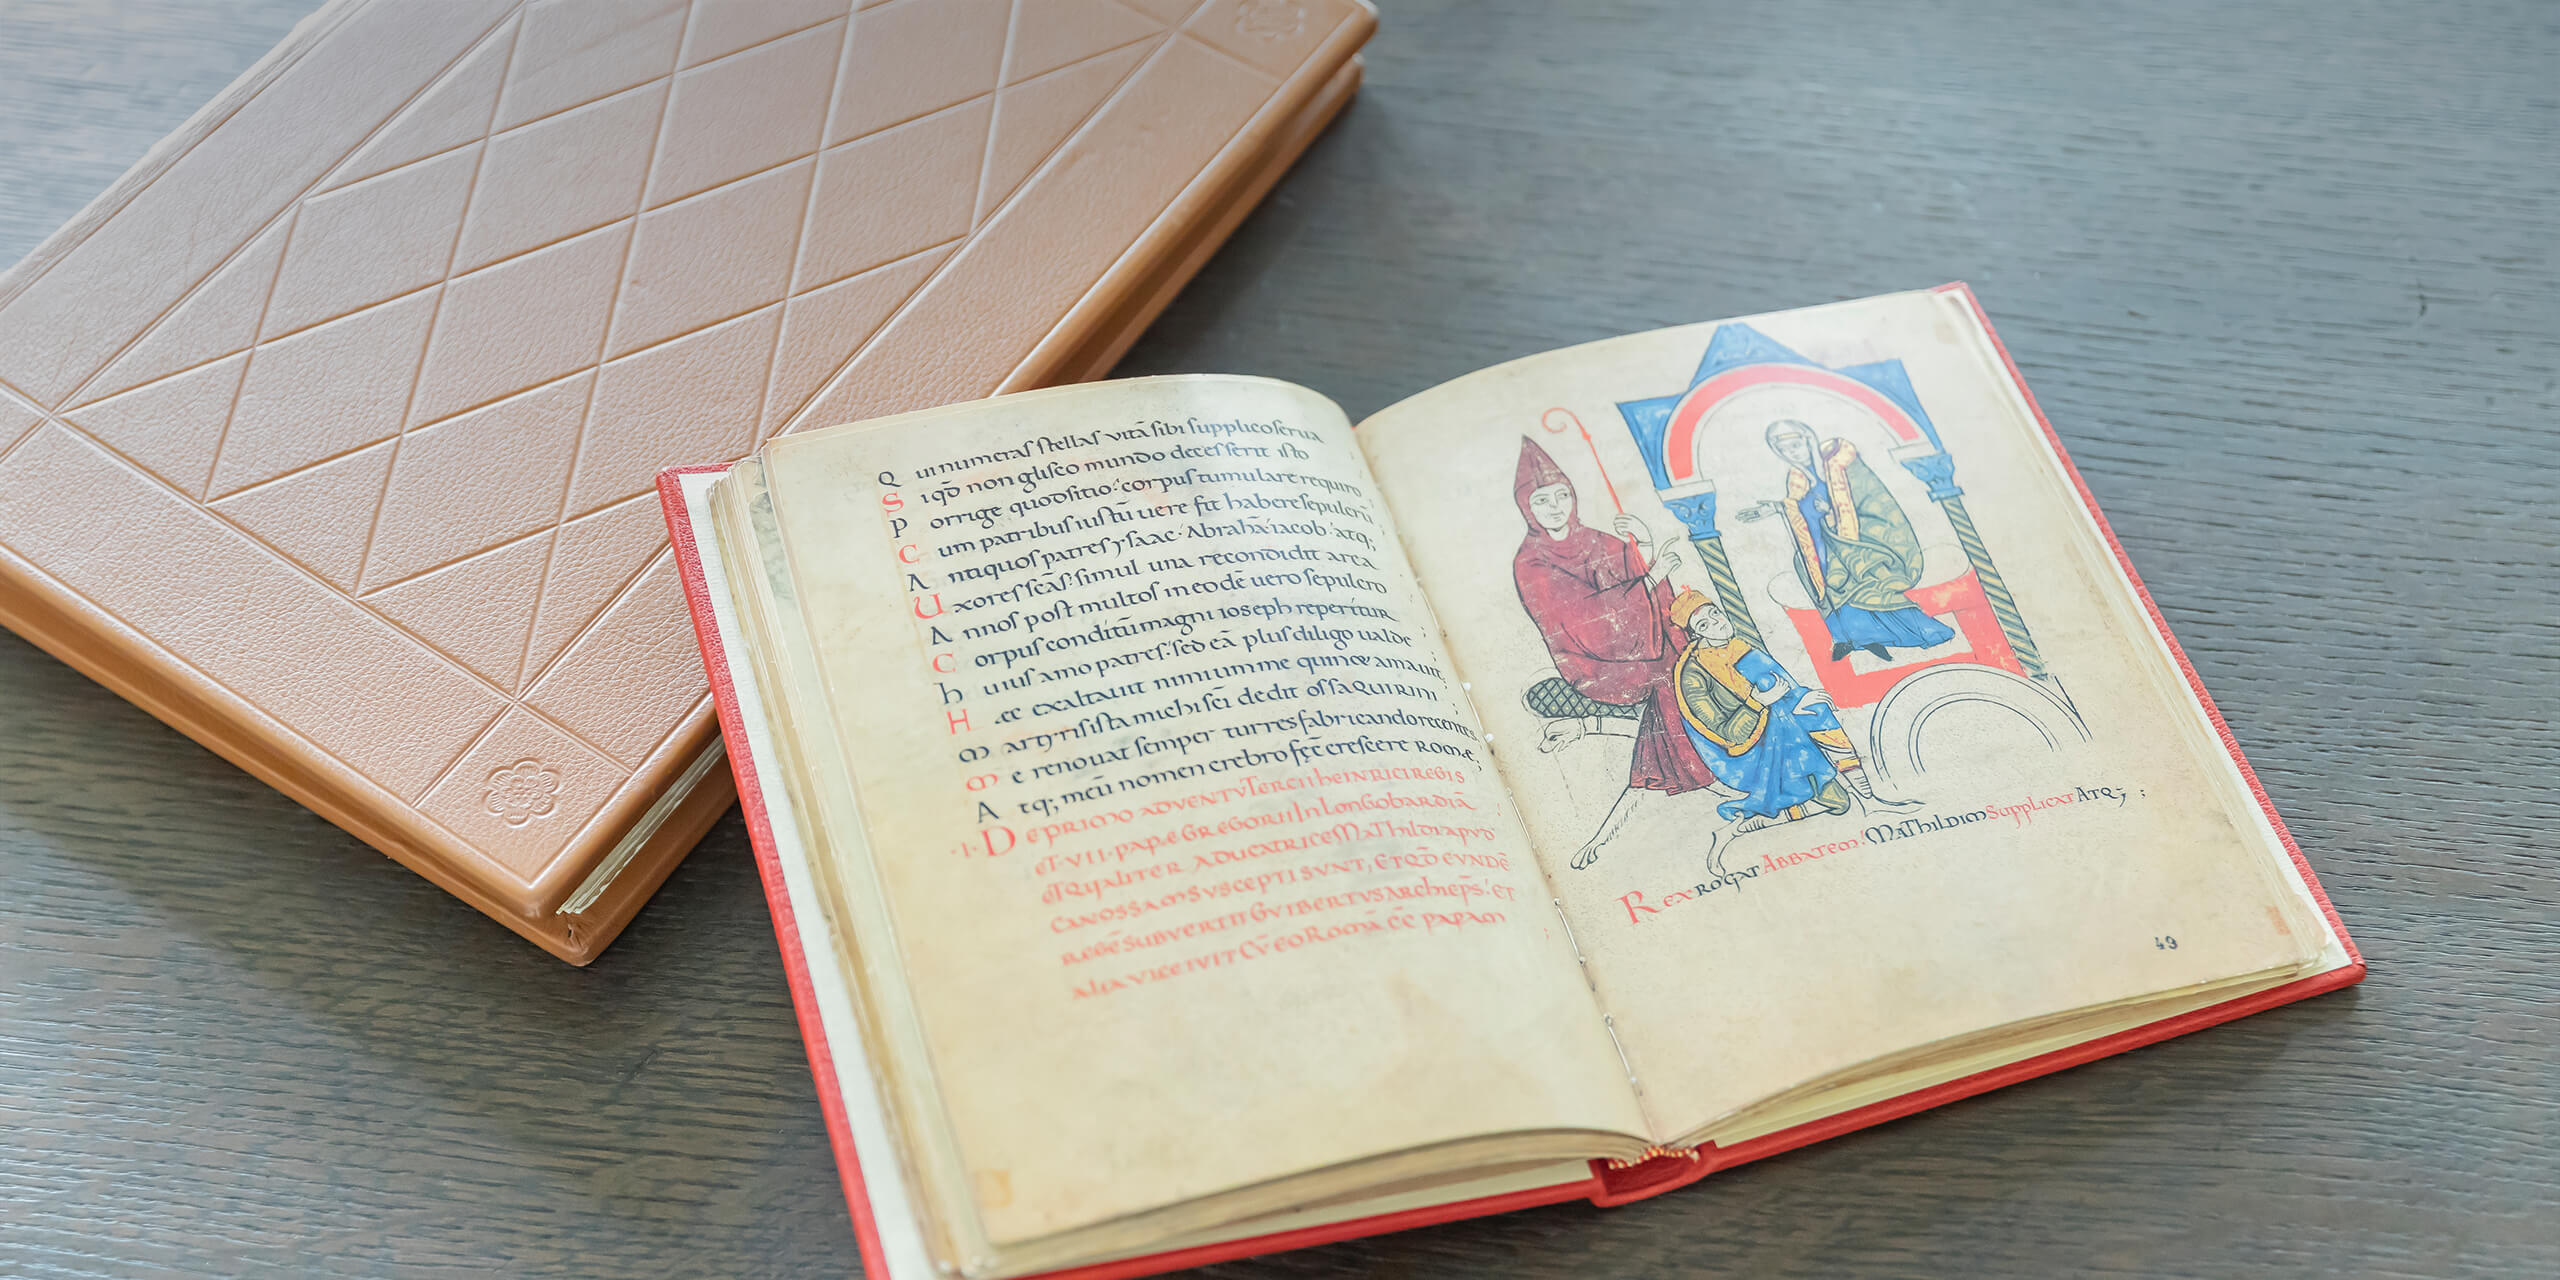 Qui numeras stellas vitā sibi supplico serua
Siqđ non glisco mundo decesserit isto
Porrige quod sitio: corpus tumulare requiro
Cum patribus iustū uere fit habere sepulcrū
Antiquos patres ysaac. Abrahā. iacob. atq;
Uxores scās: simul una recondidit arca
Annos post multos in eodē uero sepulcro
Corpus conditū magni ioseph reperitur
huius amo patres: sed eā plus diligo ualde
Hęc exaltauit nimium me quincę amauit,
martyris ista michi sci dedit ossa QUIRINI
me renouat semper turres fabricando recentes,
Atq; meū nomen crebro fec̄ crescere ROMÆ,
.I. DE PRIMO ADVENTV TERCII hEINRICI REGIS
ET .VII. PAPÆ GREGORII IN LONGOBARDIĀ
ETQVALITER A DUCATRICE MAThILDI APVD
CANOSSAM SVSCEPTI SVNT, ETQĐ EVNDĒ
REGĒ SUBVERTIT GVIBERTVS ARChIEPS̄. ET
ALIA VICE IVIT CV̄ EO ROMĀ ĒC PAPAM
REX ROGAT ABBATEM: MAThILDIM SuppLICAT ATQ; ;
49